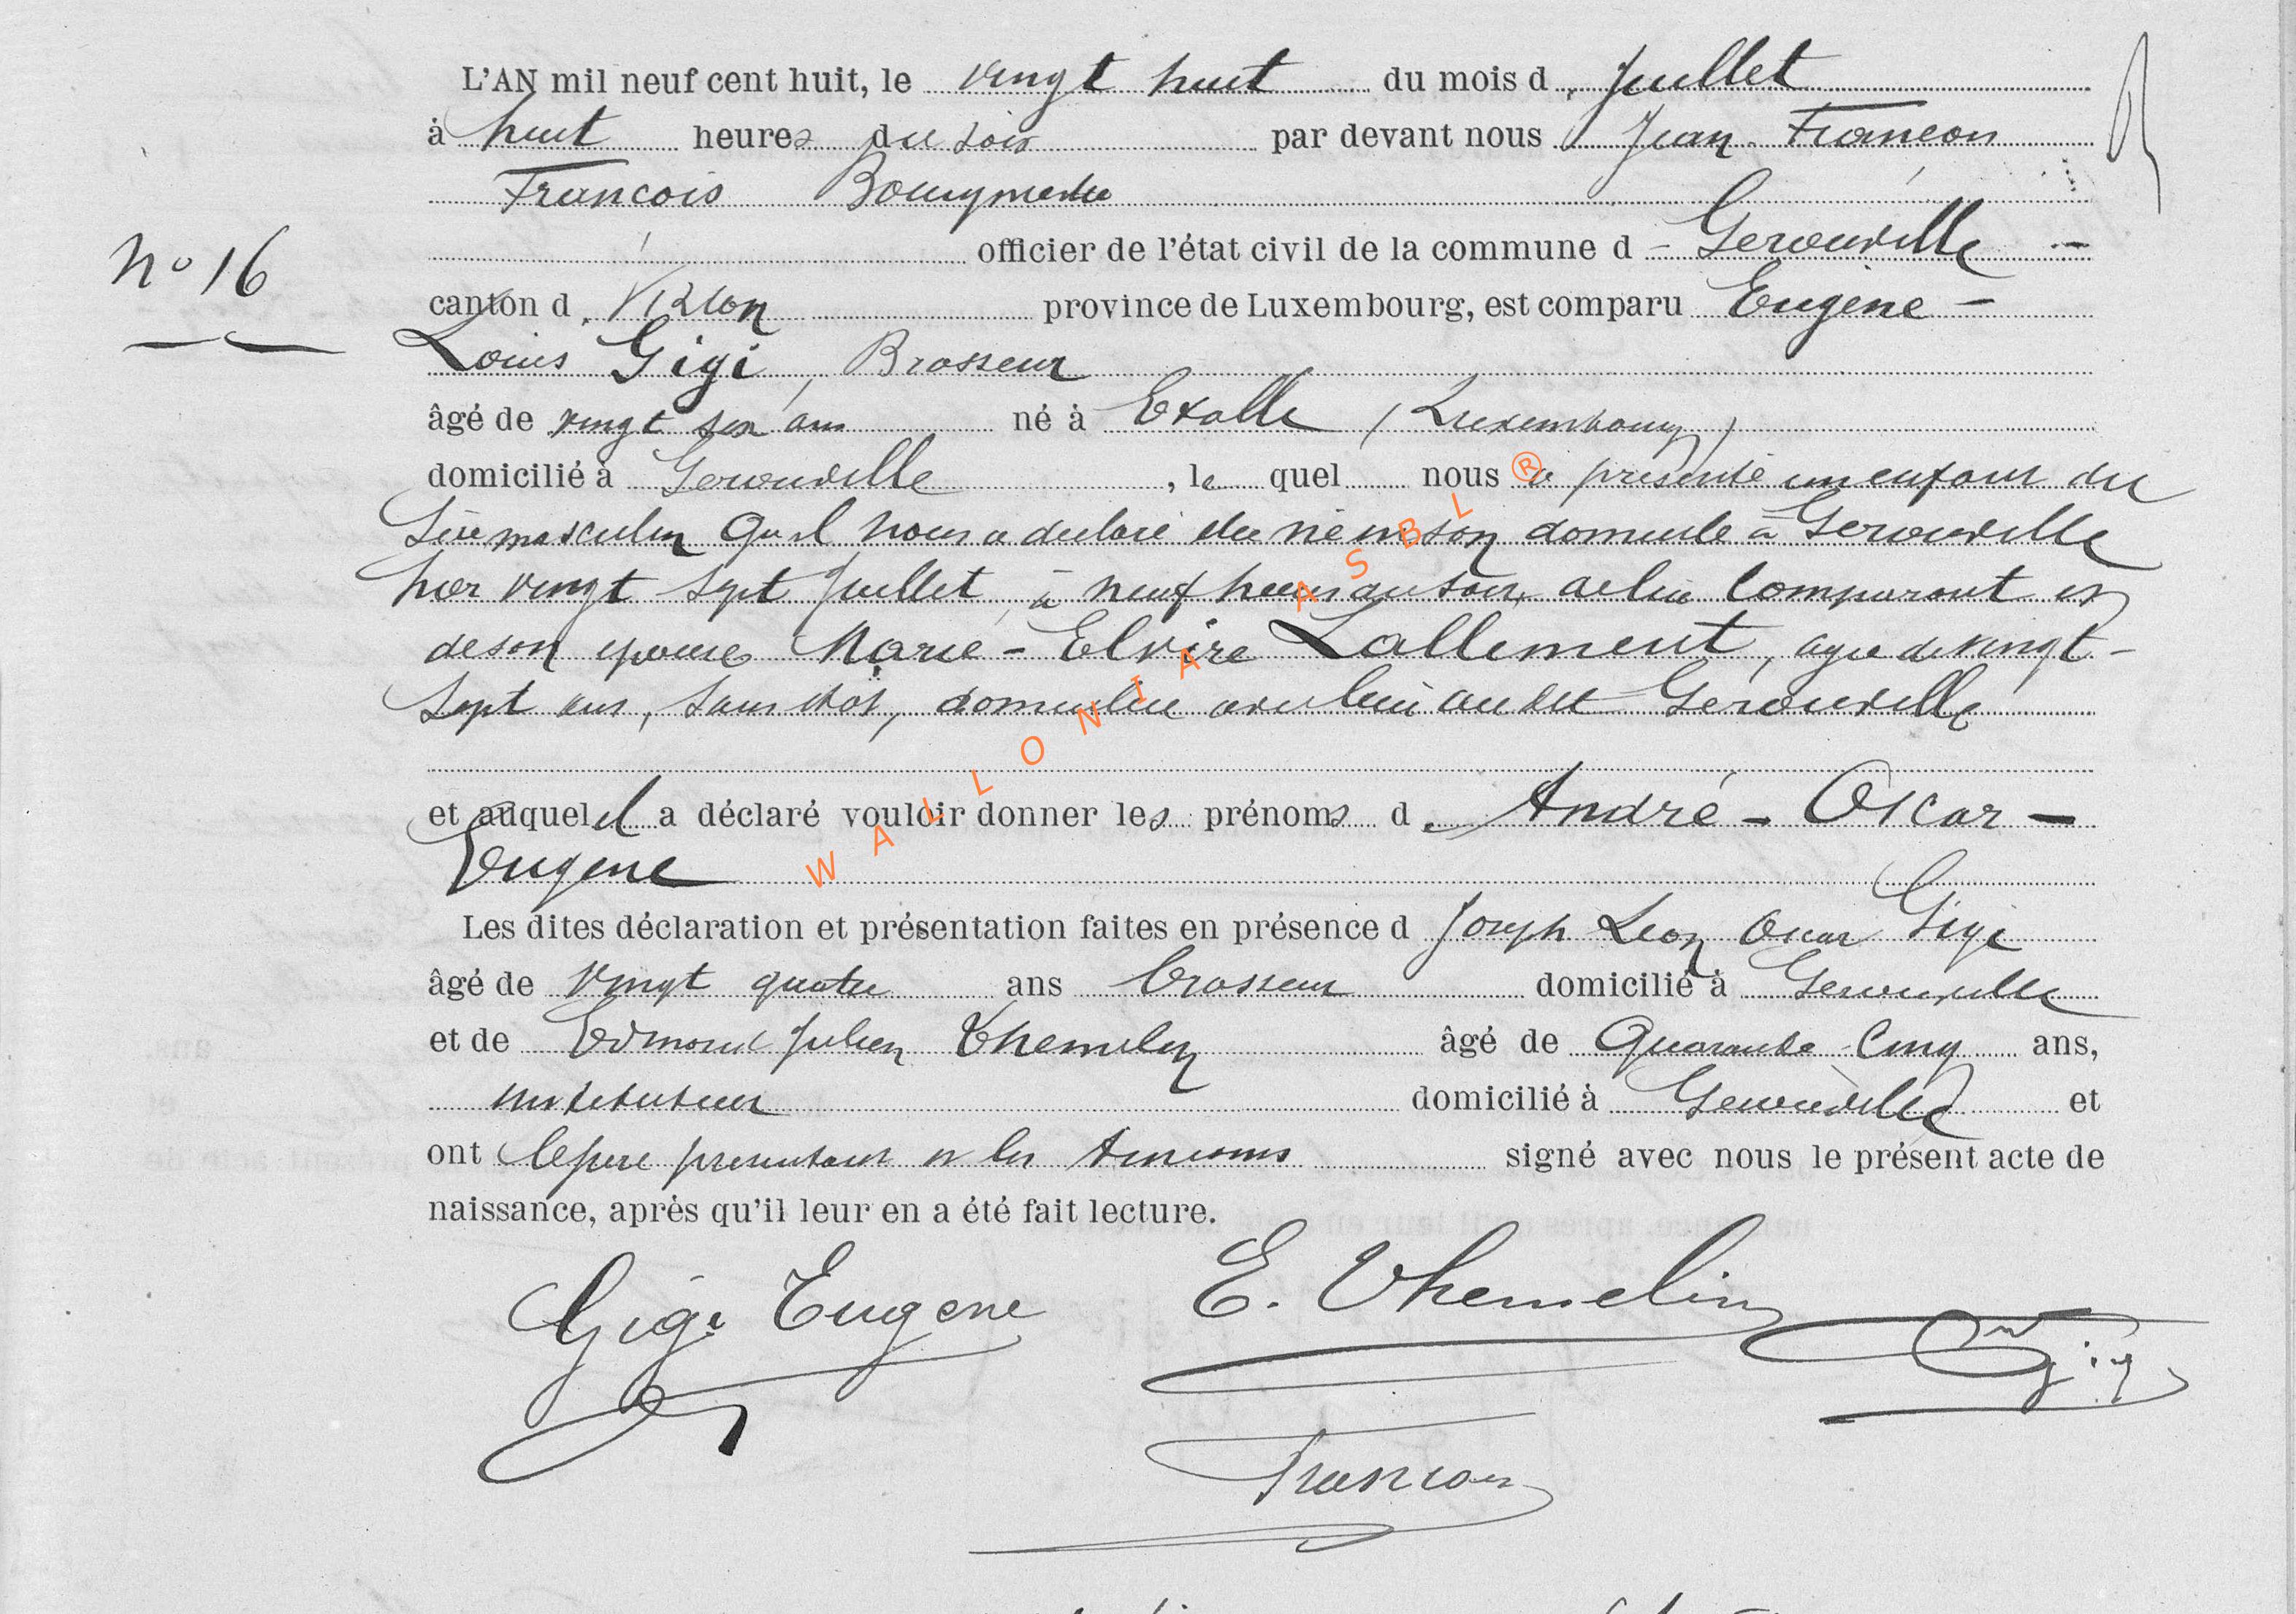 L'AN mil neuf cent huit, le vingt huit du mois d. Juillet
à huit heures du soir par devant nous Jean Francon
Francois Bourgmestre
officier de l'état civil de la commune d - Gerouville -
N° 16
canton d. Virton province de Luxembourg, est comparu Eugène -
Louis Gigi, Brasseur
âgé de vingt six ans né à Etalle (Luxembourg)
domicilié à Gerouville, le quel nous a présenté un enfant du
sexe masculin qu'il nous a déclaré être né en son domicile à Gerouville
hier vingt sept Juillet, à neuf heures du soir, de lui comparant et
de son épouse Marie - Elvire Lallement, agée de vingt -
sept ans, sans état, domiciliée avec lui au dit Gerouville
et auquel il a déclaré vouloir donner les prénoms d. André - Oscar -
Eugene
Les dites déclaration et présentation faites en présence d Joseph Leon Oscar Gigi
âgé de vingt quatre ans brasseur domicilié à Gerouville
et de Edmond Julien Themelin âgé de Quarante Cinq ans,
instituteur domicilié à Gerouville et
ont le père présentant et les témoins signé avec nous le présent acte de
naissance, après qu'il leur en a été fait lecture.
Gigi Eugene E. Themelin Gigi
Francon
WALLONIA ASBL ®